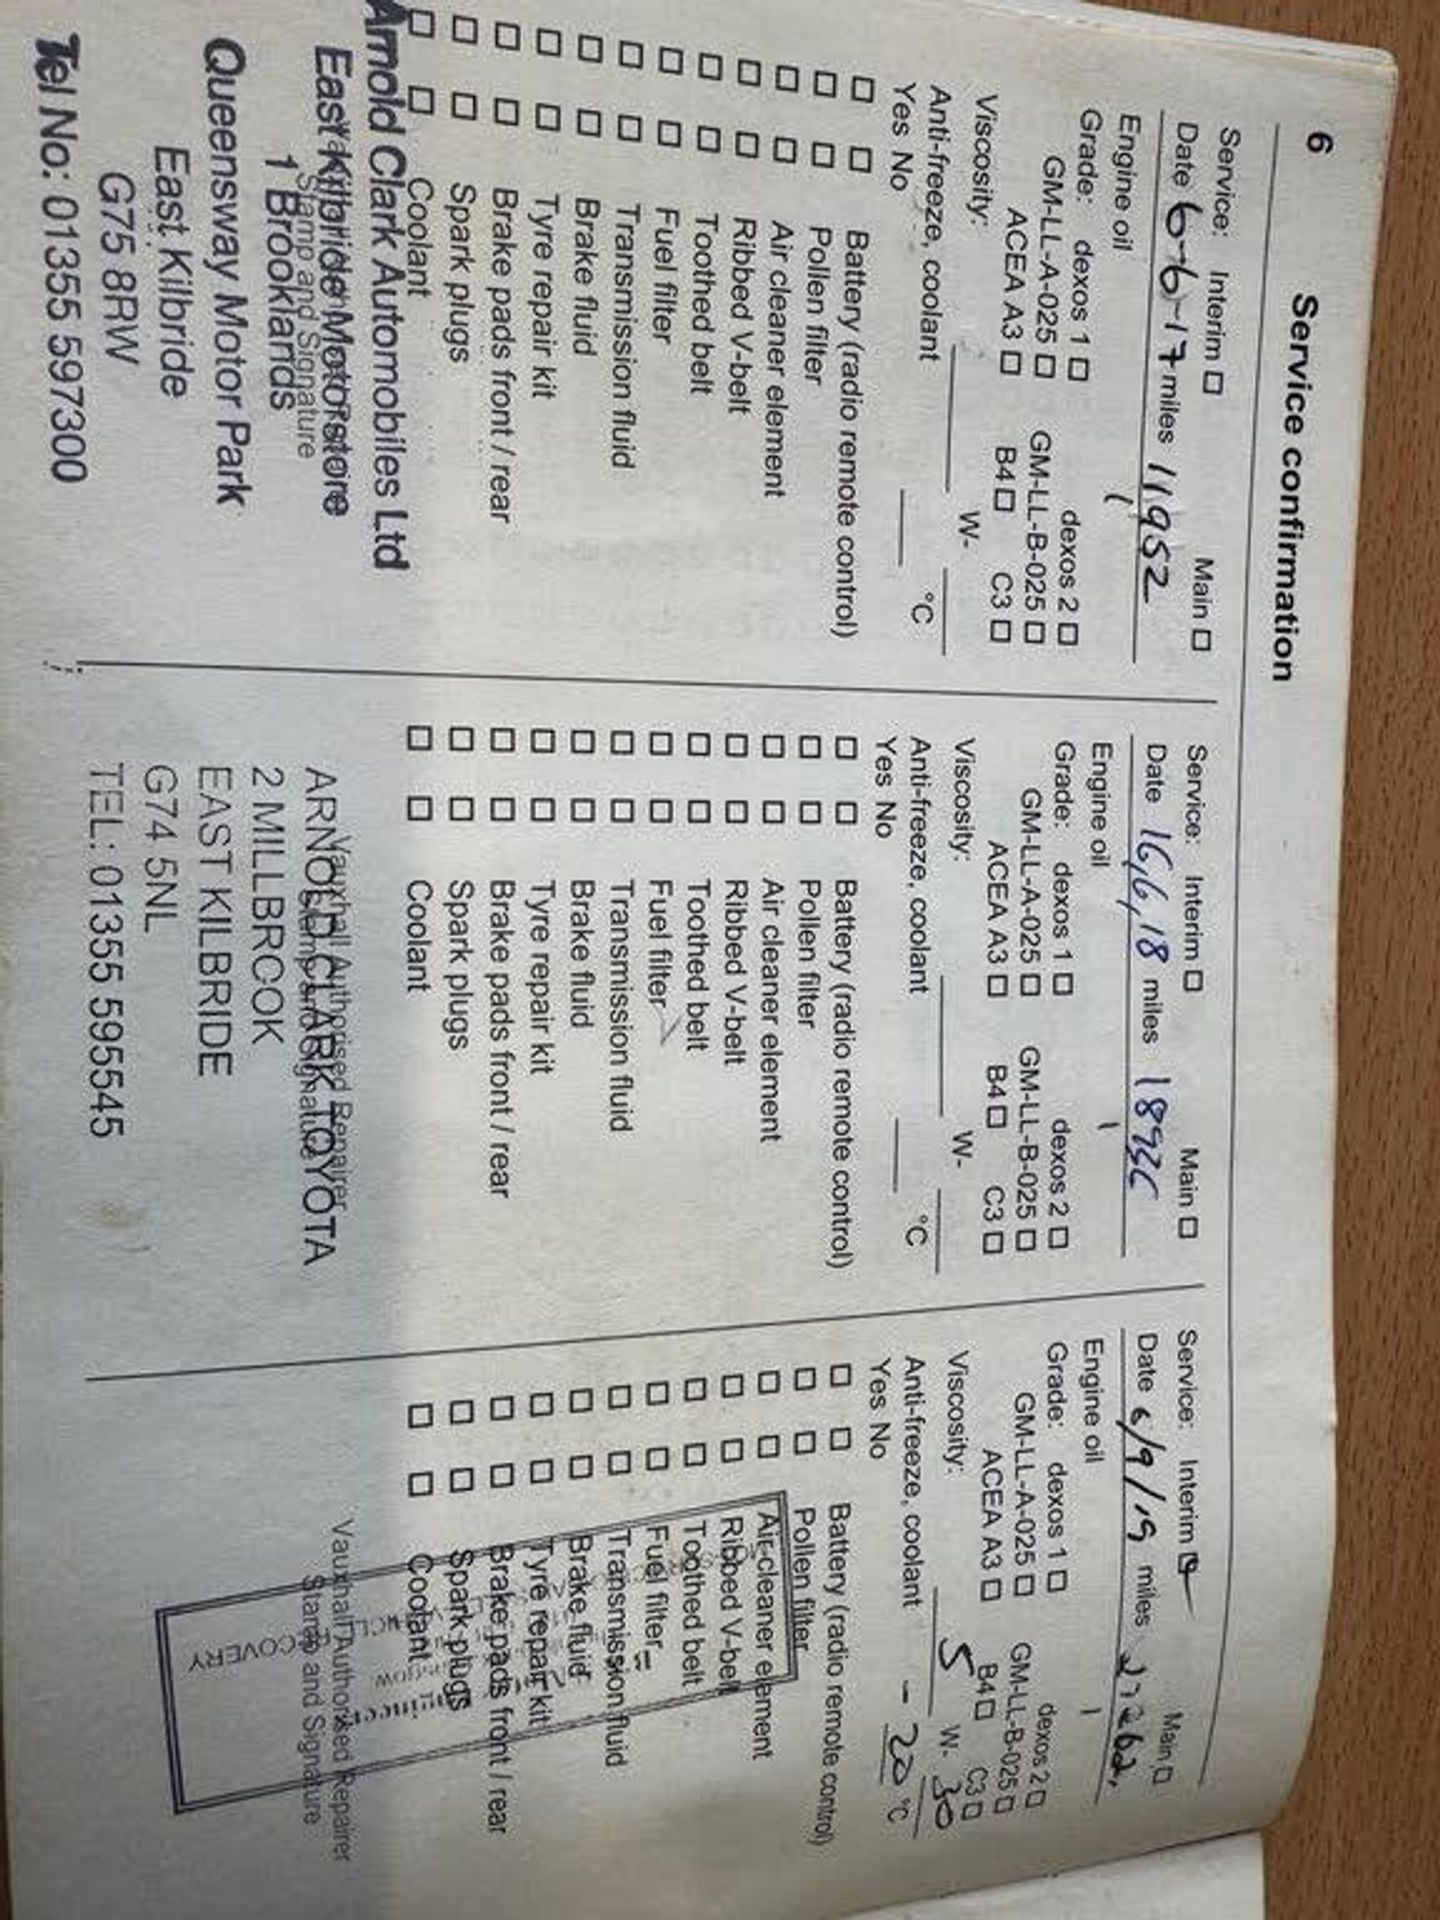 6
Service confirmation
Service: Interim □ Main □
Date 6-6-17 miles 11952
Engine oil
Grade: dexos 1 □ dexos 2 □
GM-LL-A-025 □ GM-LL-B-025 □
ACEA A3 □ B4 □ C3 □
Viscosity: W-
Anti-freeze, coolant °C
Yes No
□ □ Battery (radio remote control)
□ □ Pollen filter
□ □ Air cleaner element
□ □ Ribbed V-belt
□ □ Toothed belt
□ □ Fuel filter
□ □ Transmission fluid
□ □ Brake fluid
□ □ Tyre repair kit
□ □ Brake pads front / rear
□ □ Spark plugs
□ □ Coolant
Arnold Clark Automobiles Ltd
East Kilbride Motorstore
Stamp and Signature
1 Brooklands
Queensway Motor Park
East Kilbride
G75 8RW
Tel No: 01355 597300
Service: Interim □ Main □
Date 16,6,18 miles
Engine oil
Grade: dexos 1 □ dexos 2 □
GM-LL-A-025 □ GM-LL-B-025 □
ACEA A3 □ B4 □ C3 □
Viscosity: W-
Anti-freeze, coolant °C
Yes No
□ □ Battery (radio remote control)
□ □ Pollen filter
□ □ Air cleaner element
□ □ Ribbed V-belt
□ □ Toothed belt
□ □ Fuel filter
□ □ Transmission fluid
□ □ Brake fluid
□ □ Tyre repair kit
□ □ Brake pads front / rear
□ □ Spark plugs
□ □ Coolant
Vauxhall Authorised Repairer
Stamp and Signature
ARNOLD CLARK TOYOTA
2 MILLBRCOK
EAST KILBRIDE
G74 5NL
TEL: 01355 595545
Service: Interim ☑ Main □
Date 6/9/19 miles
Engine oil
Grade: dexos 1 □ dexos 2 □
GM-LL-A-025 □ GM-LL-B-025 □
ACEA A3 □ B4 □ C3 □
Viscosity: 5 W- 30
Anti-freeze, coolant - 20 °C
Yes No
□ □ Battery (radio remote control)
□ □ Pollen filter
□ □ Air cleaner element
□ □ Ribbed V-belt
□ □ Toothed belt
□ □ Fuel filter
□ □ Transmission fluid
□ □ Brake fluid
□ □ Tyre repair kit
□ □ Brake pads front / rear
□ □ Spark plugs
□ □ Coolant
Vauxhall Authorised Repairer
Stamp and Signature
RECOVERY